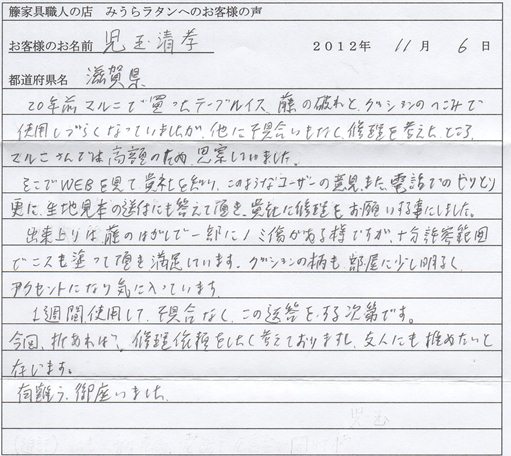 籐家具職人の店 みうらラタンへのお客様の声
お客様のお名前 児玉清孝 2012年 11月 6日
都道府県名 滋賀県
20年前マルニで買ったテーブルイス、籐の破れと、クッションのへこみで
使用しづらくなっていましたが、他に不具合いもなく、修理を考えたところ、
マルニさんでは高額のため、思案していました。
そこでWEBを見て貴社を知り、このようなユーザーの意見、また、電話でのやりとり
更に、生地見本の送付にも答えて頂き、貴社に修理をお願いする事にしました。
出来上りは、籐のはがしで一部にハミ傷がある様ですが、十分許容範囲
でニスも塗って頂き満足しています。クッションの柄も、部屋に少し明るく
アクセントになり気に入っています。
1週間使用して、不具合なく、この返答をする次第です。
今回、折あれば、修理依頼をしたく考えておりますし、友人にも推めたいと
存じます。
有難う、御座いました。
児玉